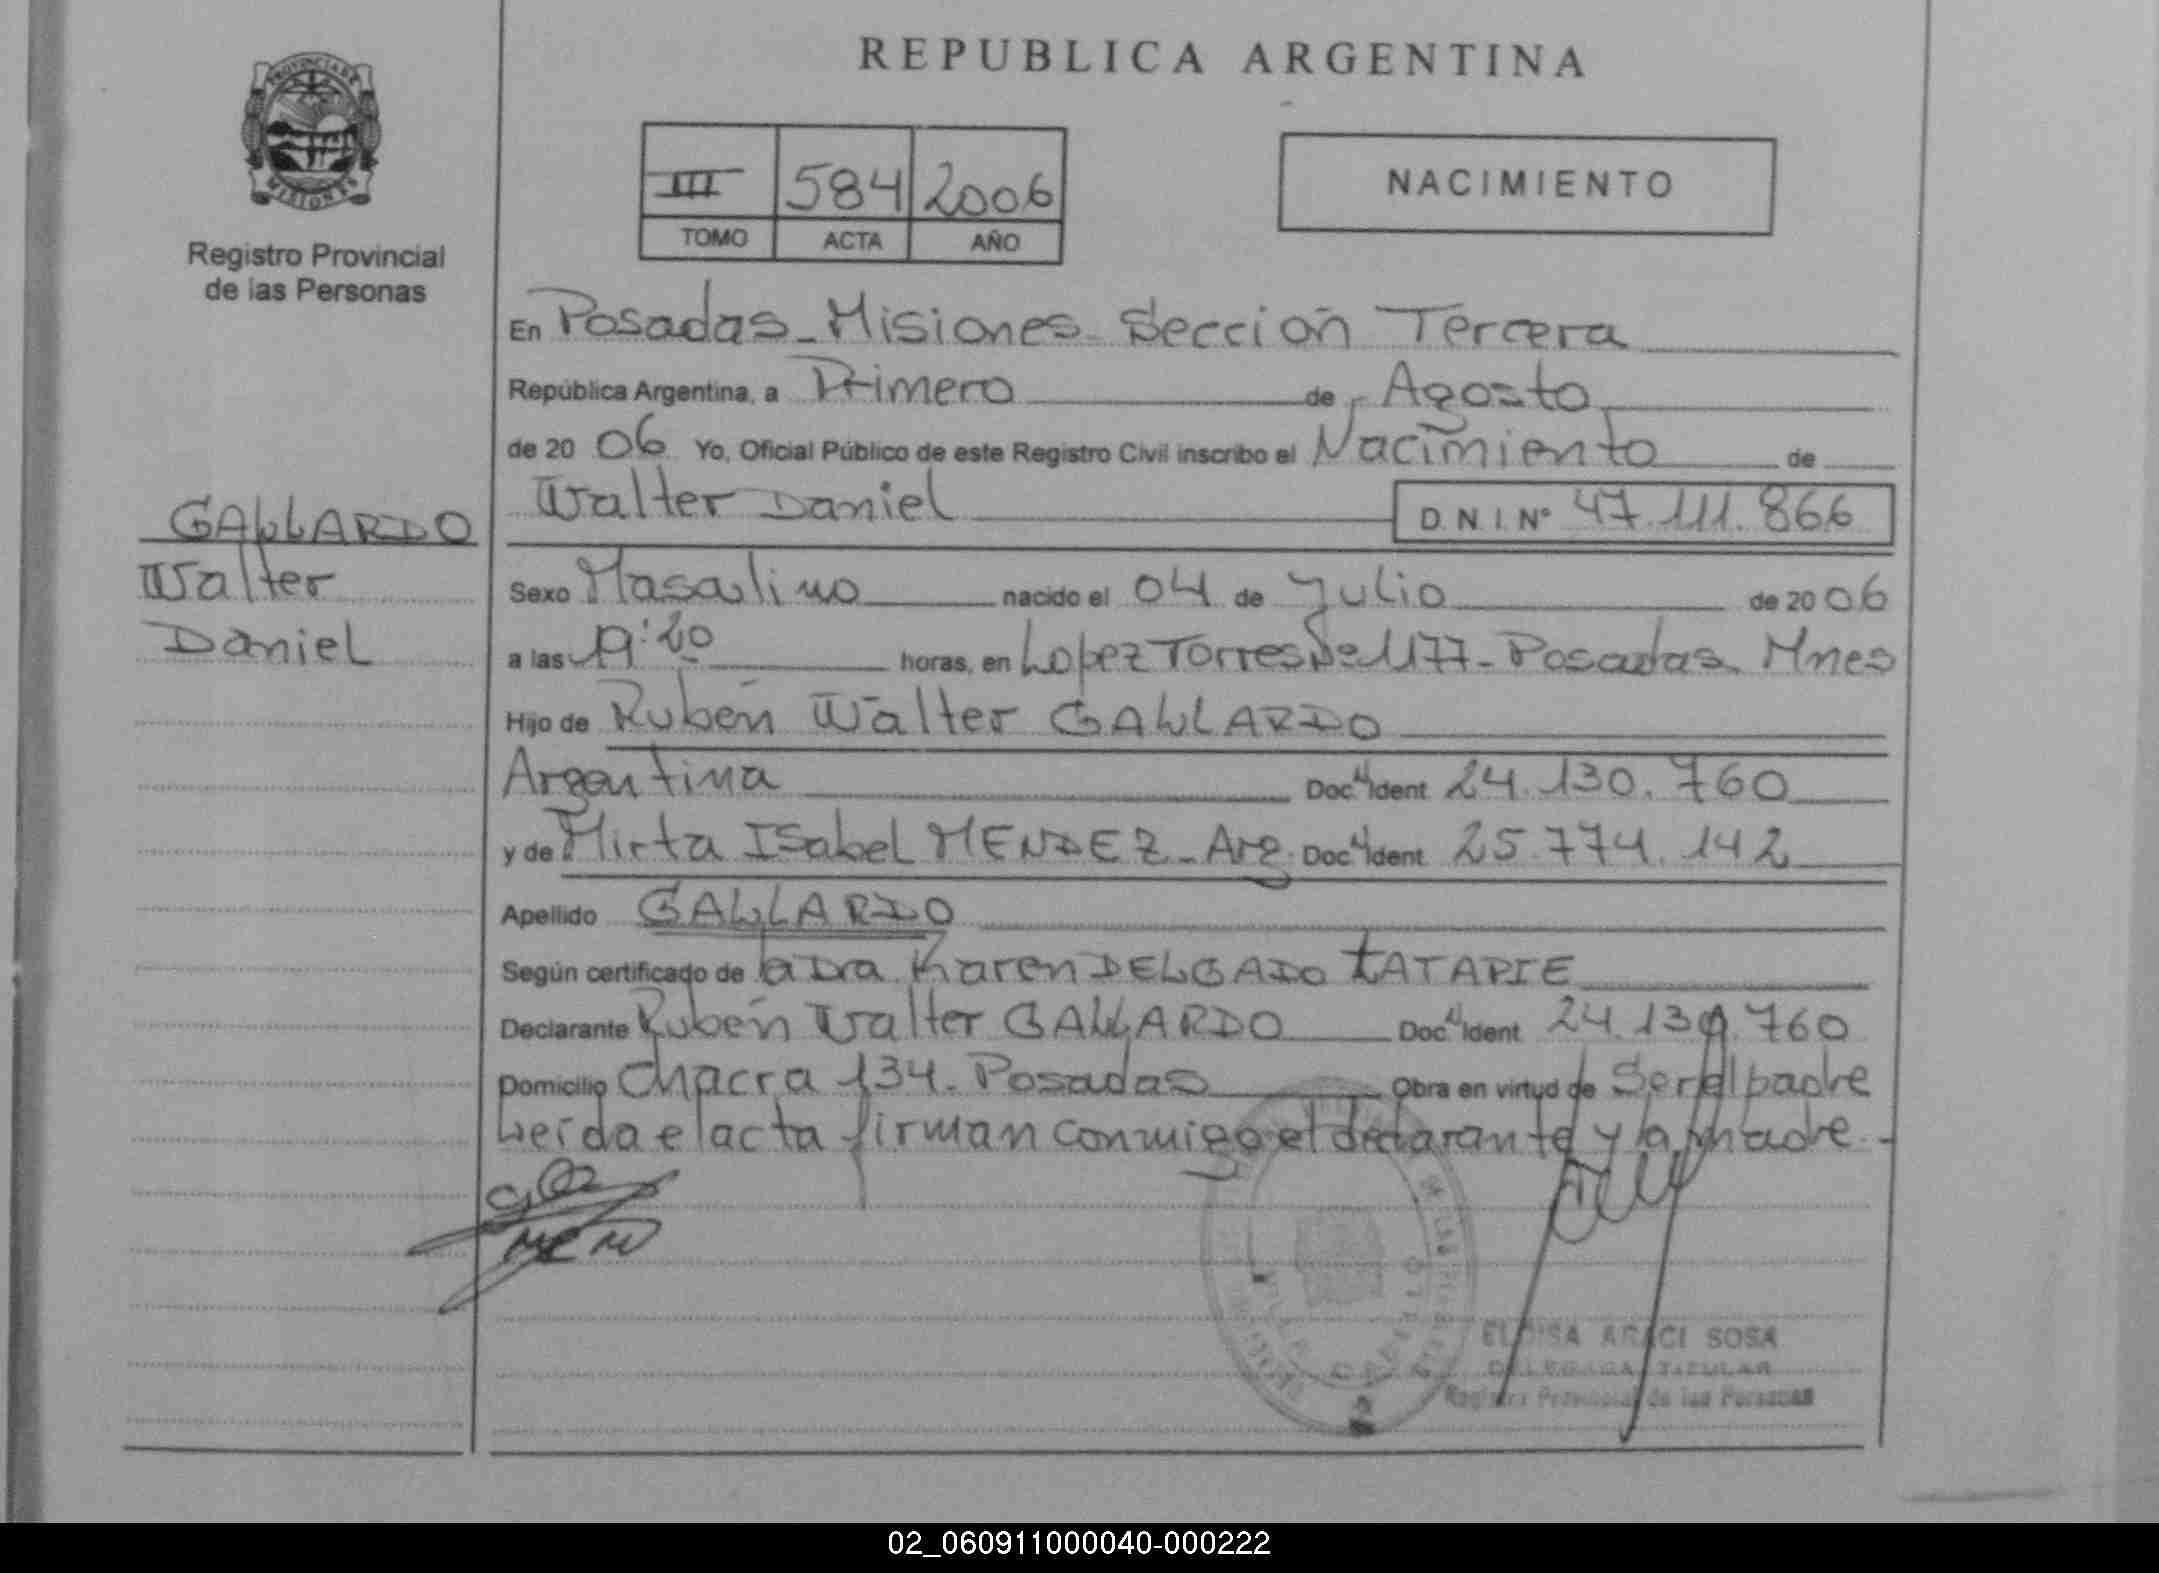 PROVINCIA DE
MISIONES
Registro Provincial
de las Personas
REPUBLICA ARGENTINA
III 584 2006
TOMO ACTA AÑO
NACIMIENTO
En Posadas - Misiones - Sección Tercera
República Argentina, a Primero de Agosto
de 20 06 Yo, Oficial Público de este Registro Civil inscribo el Nacimiento de
Walter Daniel D.N.I. Nº 47.111.866
GALLARDO
Walter
Daniel
Sexo Masculino nacido el 04 de Julio de 20 06
a las 19:20 horas, en Lopez Torres Nº 1177 - Posadas Mnes
Hijo de Rubén Walter GALLARDO
Argentina Doc. Ident 24.130.760
y de Mirta Isabel MENDEZ - Arg. Doc. Ident 25.774.142
Apellido GALLARDO
Según certificado de la Dra Karen DELGADO TATAPIE
Declarante Rubén Walter GALLARDO Doc. Ident 24.130.760
Domicilio Chacra 134. Posadas Obra en virtud de Ser el padre
Leida el acta firman conmigo el declarante y la madre.-
ELOISA ARACI SOSA
DELEGADA TITULAR
Registro Provincial de las Personas
02_060911000040-000222